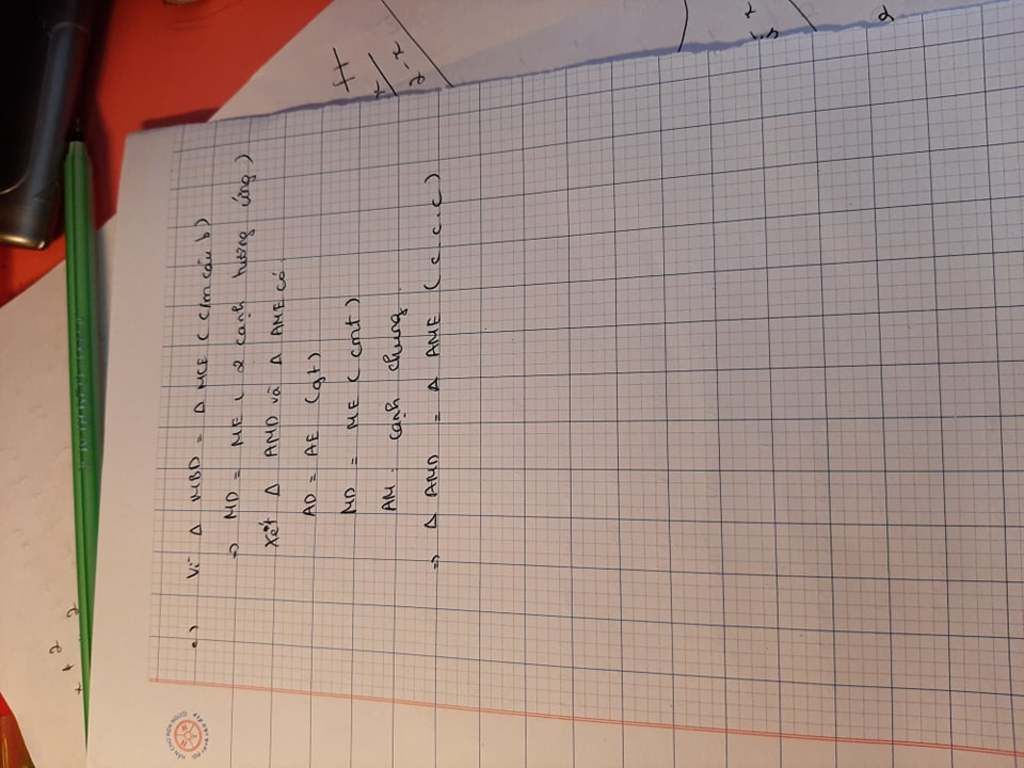 c) Vì Δ MBD = Δ MCE ( c/m câu b)
⇒ MD = ME ( 2 cạnh tương ứng )
Xét Δ AMD và Δ AME có
AD = AE (gt)
MD = ME ( cmt)
AM : cạnh chung
⇒ Δ AMD = Δ AME ( c . c . c )